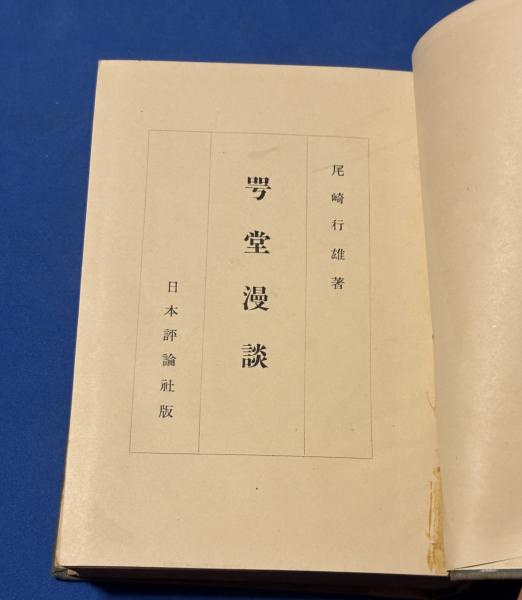 尾崎行雄著
咢堂漫談
日本評論社版